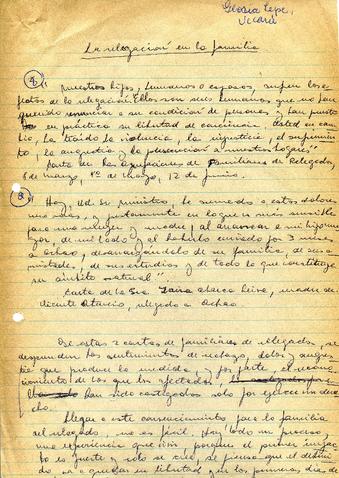 Gloria Lepe,
Vicaría
La relegación en la familia
nuestros hijos, hermanos o esposos, sufren los e-
fectos de la relegación. Ellos son seres humanos que no han
querido renunciar a su condición de personas y han puesto
en práctico su libertad de conciencia. Usted en cam-
bio, ha traído la violencia, la injusticia, el sufrimien-
to, la angustia y la a nuestros hogares"
Carta de las Agrupaciones de Familiares de Relegados,
6 de marzo, 1º de mayo, 12 de junio.
Hoy, Ud. Sr. ministro, ha sumado a estos dolores
uno más, y justamente en lo que es más sensible
para una mujer y madre, al arrancar a mi hijo ma-
yor, de mi lado y el haberlo enviado por 3 meses
a Achao, desarraigándolo de su familia, de sus a-
mistades, de sus estudios y de todo lo que constituye
su ámbito natural"
Carta de la Sra. Leiva, madre del
relegado a Achao
De estas 2 cartas de familiares de relegados, se
desprenden los sentimientos de rechazo, dolor y angus-
tia que produce la medida, y por parte, el recono-
cimiento de los que los afectados,
han sido castigados solo por ejercer un dere-
cho.
Llegar a este convencimiento para la familia
del relegado, no es fácil. Hay todo un proceso,
una experiencia que vivir, porque el primer impac-
to es fuerte y solo se cree, se piensa que el deteni-
do va a quedar en libertad en los primeros días de